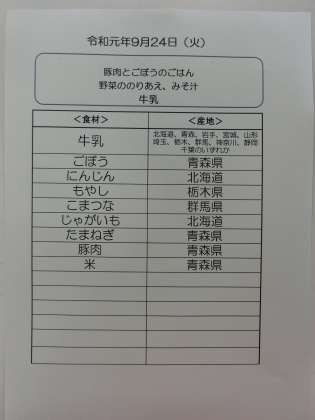 令和元年9月24日（火）
豚肉とごぼうのごはん
野菜ののりあえ、みそ汁
牛乳
＜食材＞ ＜産地＞
牛乳 北海道、青森、岩手、宮城、山形
埼玉、栃木、群馬、神奈川、静岡
千葉のいずれか
ごぼう 青森県
にんじん 北海道
もやし 栃木県
こまつな 群馬県
じゃがいも 北海道
たまねぎ 青森県
豚肉 青森県
米 青森県